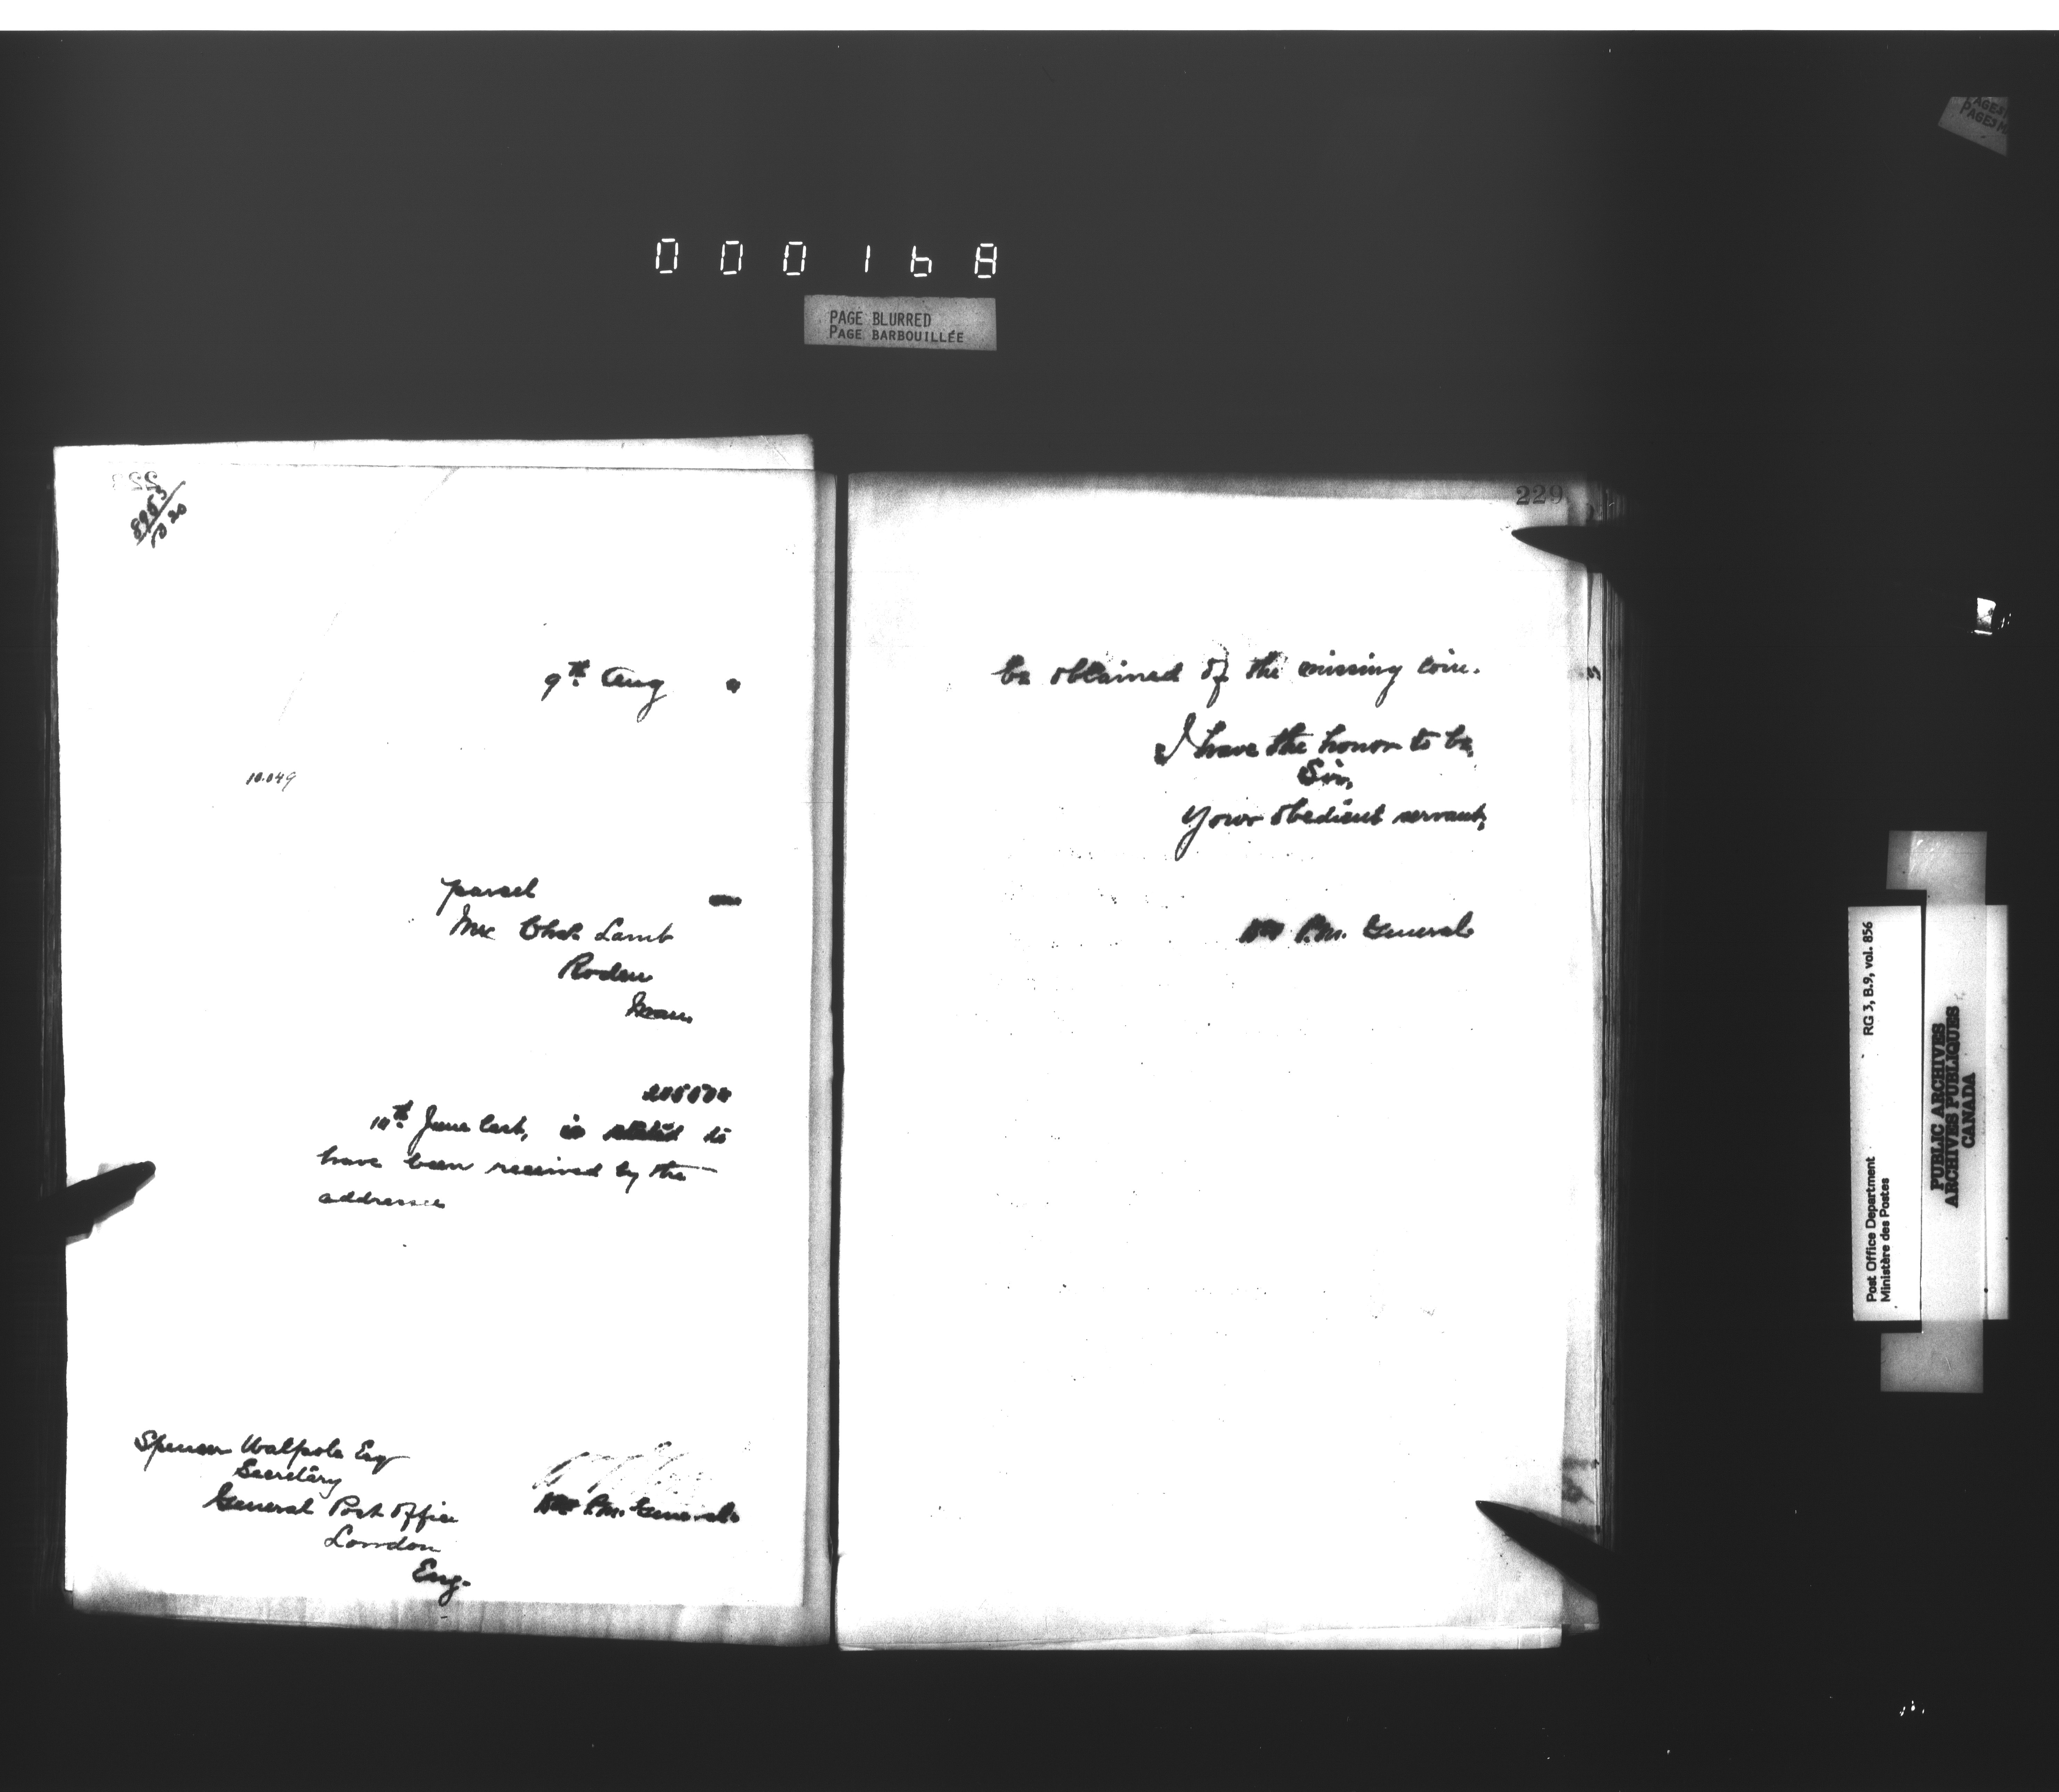 000168
PAGE BLURRED
PAGE BARBOUILLÉE
9th Aug
10.049
parcel
Mrs Chas Lamb
Roden
Man.
10th June last, is stated to
have been received by the
addressee
Spencer Walpole Esq
Secretary
General Post Office
London
Eng.
P.M. General
229
be obtained of the missing coin.
I have the honor to be,
Sir,
Your obedient servant,
P.M. General
Post Office Department
Ministère des Postes
RG 3, B.9, vol. 856
PUBLIC ARCHIVES
ARCHIVES PUBLIQUES
CANADA